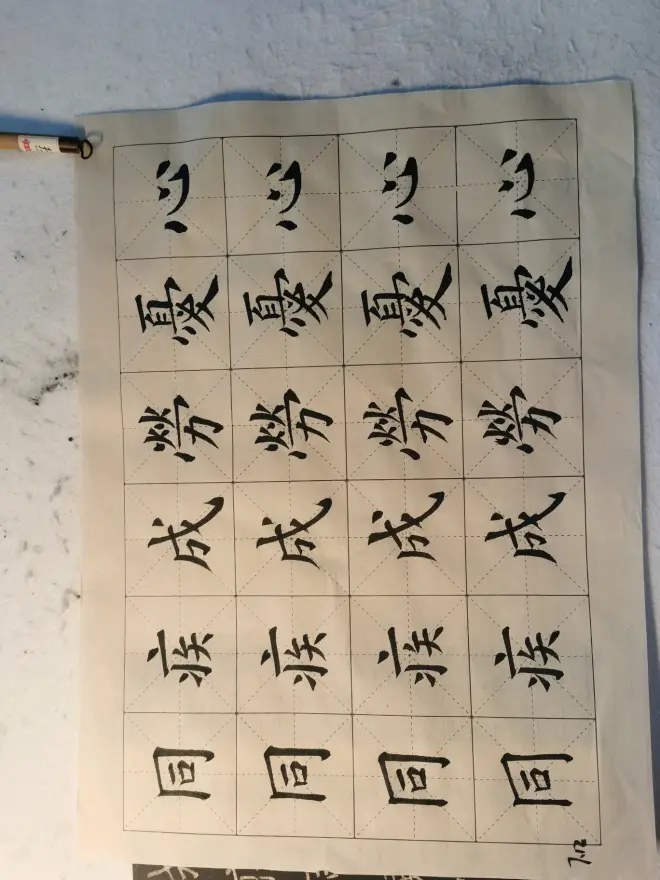 心心心心
憂憂憂憂
勞勞勞勞
成成成成
疾疾疾疾
同同同同
7.12